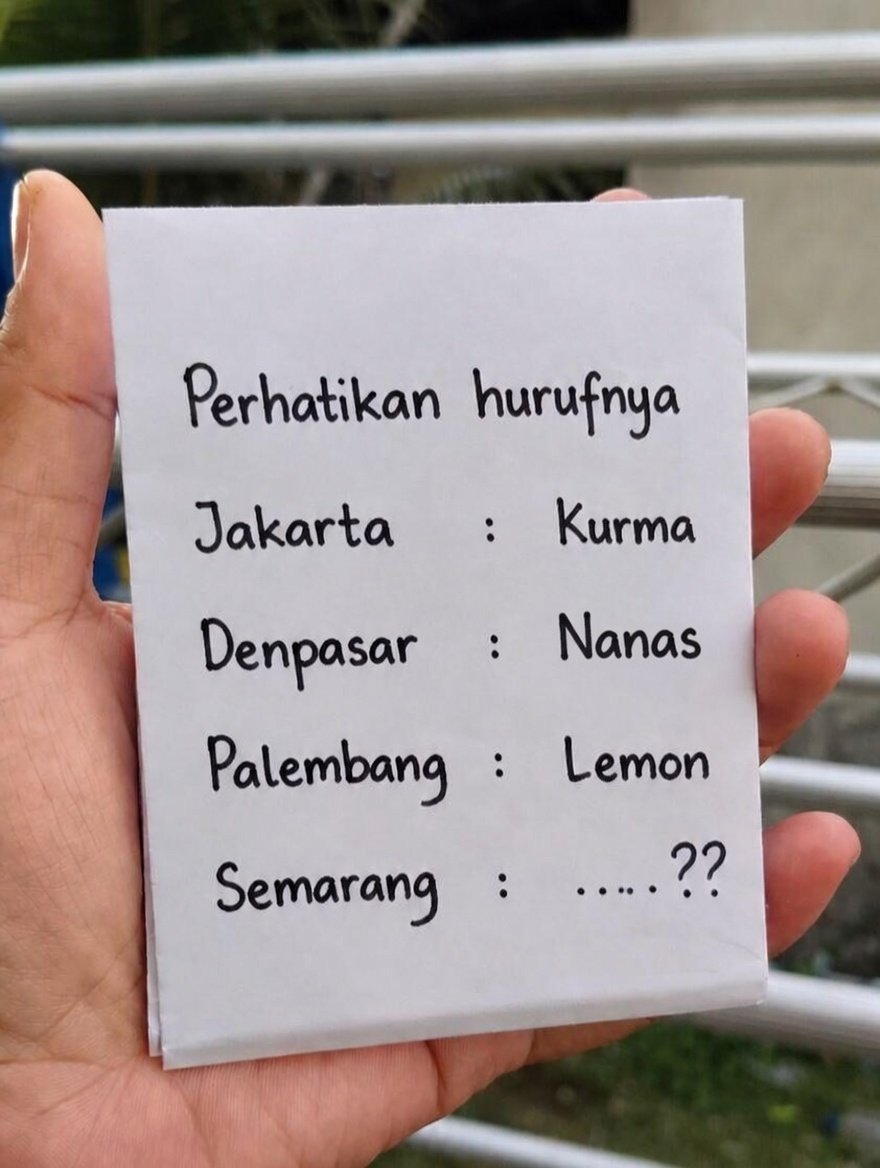 Perhatikan hurufnya
Jakarta : Kurma
Denpasar : Nanas
Palembang : Lemon
Semarang : .....??